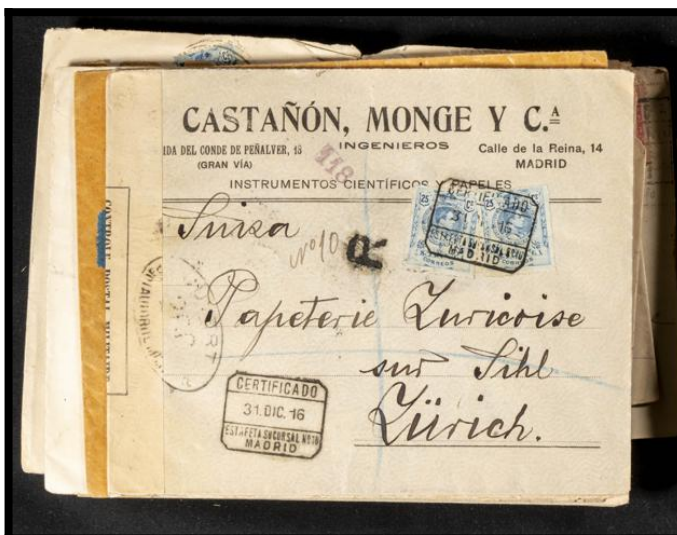 CASTAÑÓN, MONGE Y C.ª
IDA DEL CONDE DE PEÑALVER, 13
(GRAN VÍA)
INGENIEROS
Calle de la Reina, 14
MADRID
INSTRUMENTOS CIENTÍFICOS Y PAPELES
118
25 25
CERTIFICADO
31 16
MADRID
Suiza
Nº 10
R
Papeterie Zuricoise
sur Sihl
Zürich.
CONTROLE POSTAL MILITAIRE
CERTIFICADO
31.DIC.16
ESTAFETA SUCURSAL Nº 10
MADRID